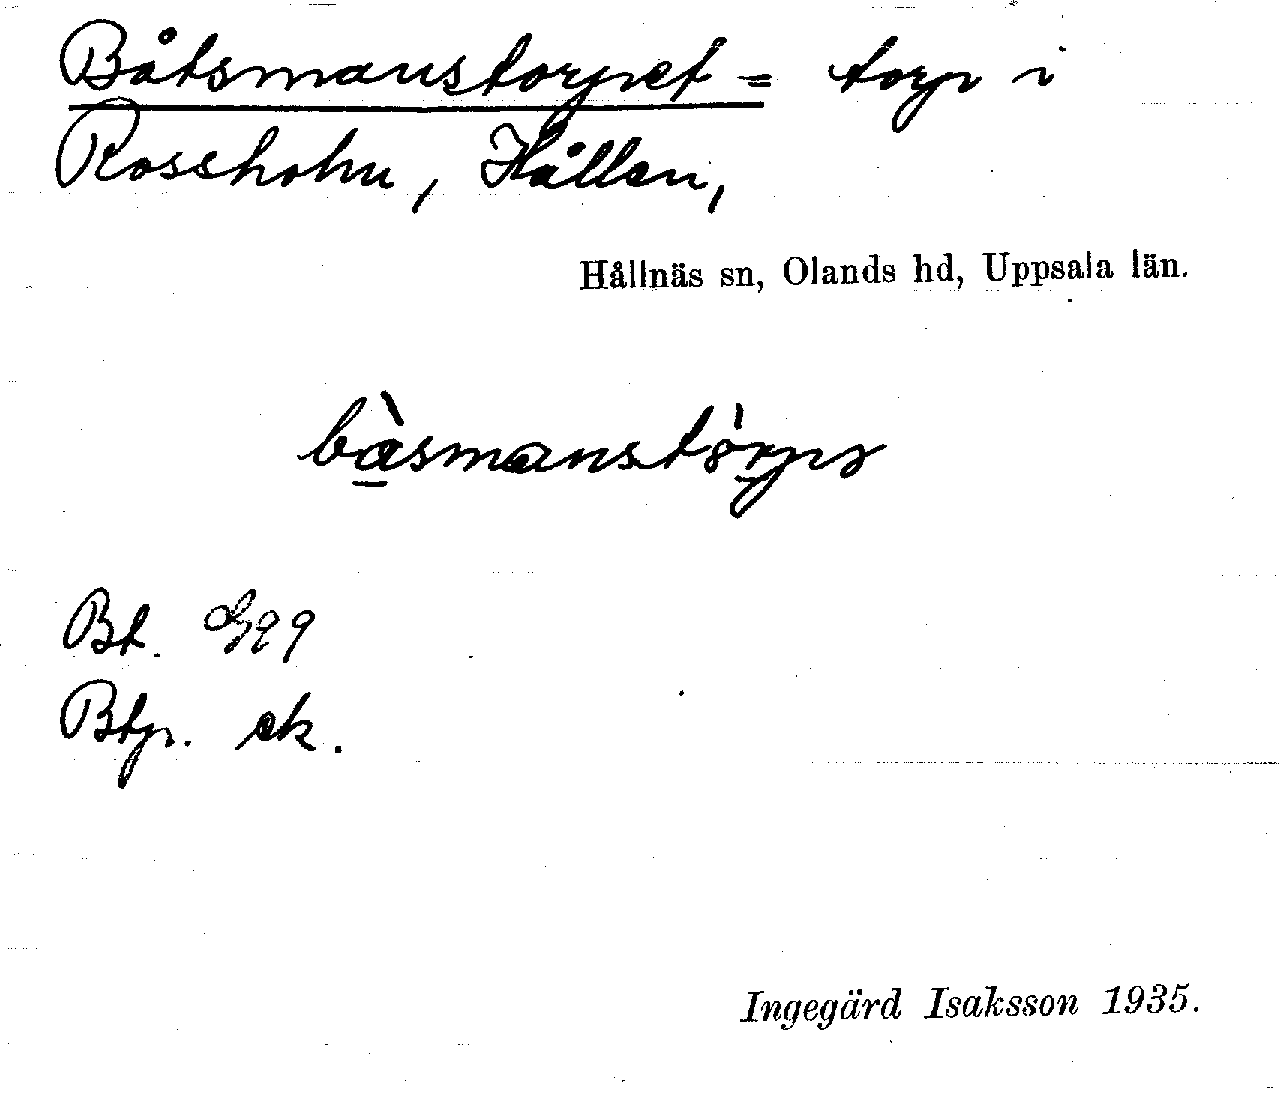 Båtsmanstorpet = torp i
Rossholm, Hållen,
Hållnäs sn, Olands hd, Uppsala län.
bàsmanstórpə
Bt.
Btp. ek.
Ingegärd Isaksson 1935.